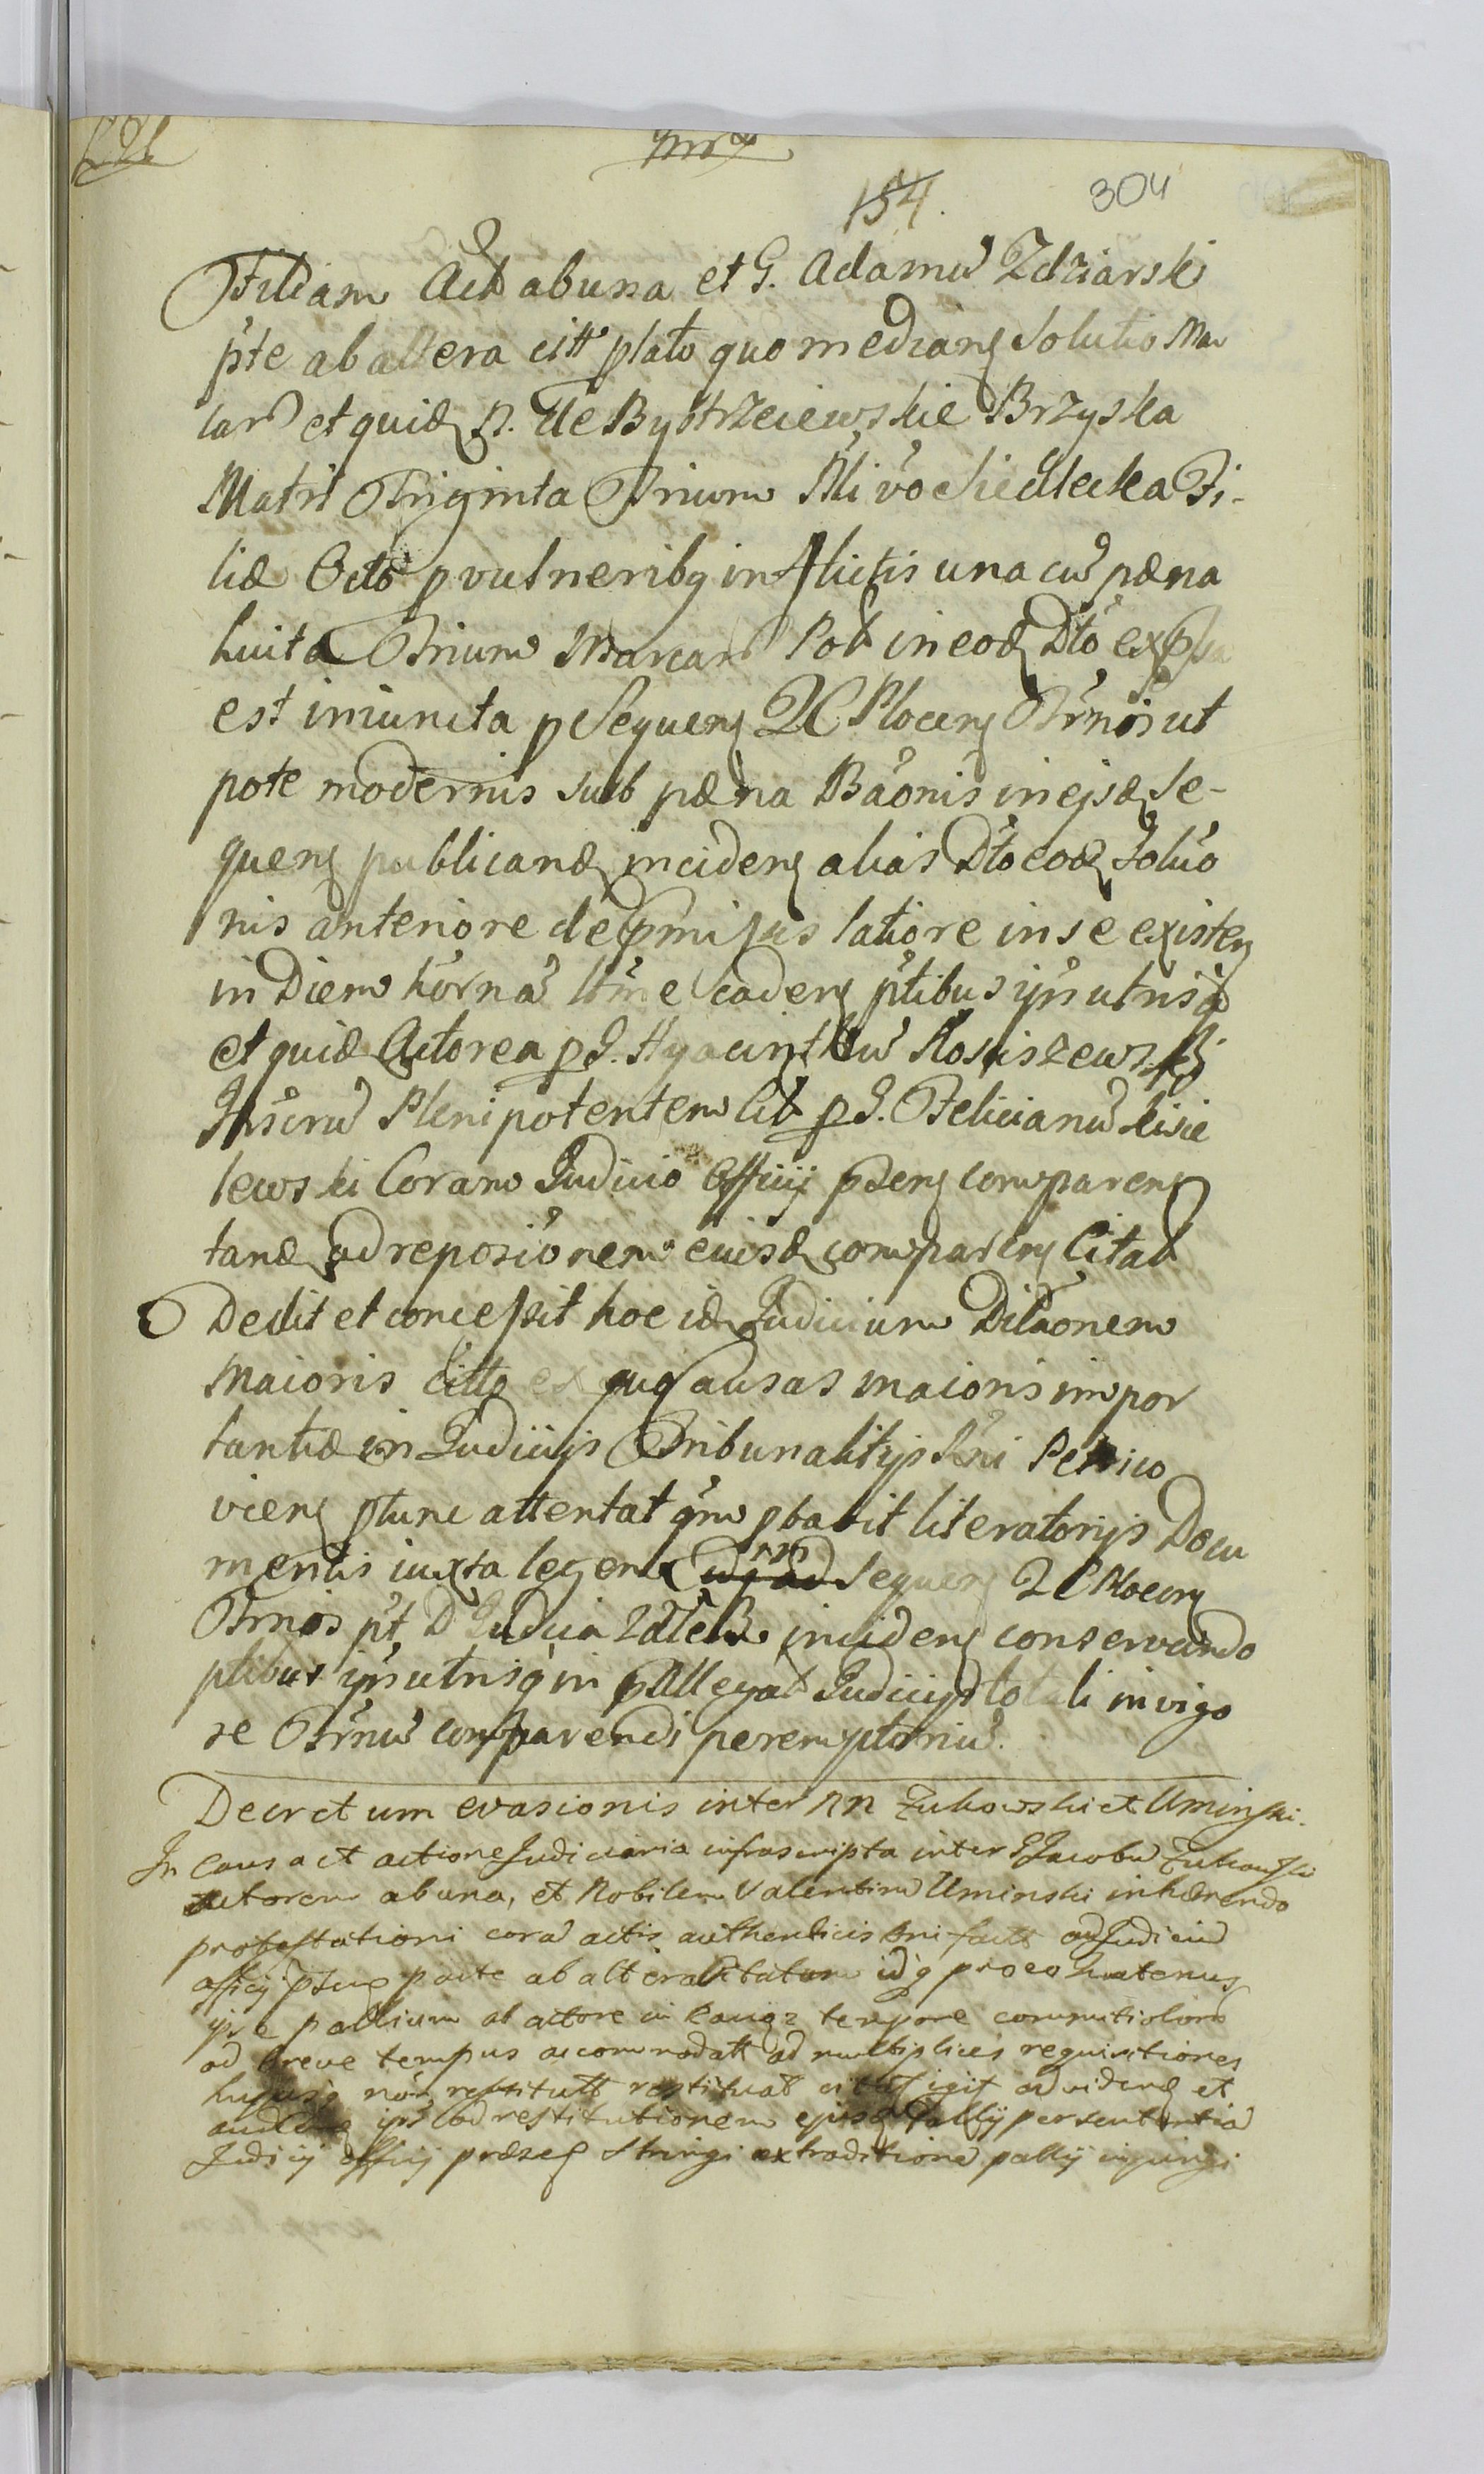 154.
304
Filiam Act ab una et G. Adamū Zdziarski
pte ab altera citt plato quo medians Solutio Mar
car et quid N. de Bystrzeciewskie Brzyska
Matri Triginta Trium Alī vō Siedlecka Fi-
liæ Octo p vulneribq inflictis una cū pæna
luita Trium Marcar Pol in eod Dtō expssa
est iniuncta p Sequens QC Plocens Trnōs ut
pote modernis sub pæna Baōnis in ejsd Se-
quens publicand incidens alias Dto eod Soluō
nis anteriore de pmissis latiore in se existen
in Diem hornā cadens ptibus ipīs utrisq
et quid Actorea p G. Hyacinthū Rosciszewski
Plenipotentem Cit p G. Felicianū Kisie
lewski Coram Judicio Officij psens comparens
tand ad reposiōnem eiusd comparens Citat
Dedit et concessit hoc id Judicium Dilaōnem
Maioris citto ex quo causas maioris impor
tantiæ in Judicijs Tribunalitijs Rni Petrico
viens ptunc attentat qm pbabit literatorijs Docu
mentis iuxta legem in Sequens QC Plocens
Trnōs pt D Judicia incidens conservando
ptibus ipīs utrisq in pAllegat Judicijs totali in vigo
re Trnū comparendi peremptoriū.
Decretum evasionis inter NN Żukowski et Uminski.
In Causa et actione Judiciaria infrascripta inter G Jacobū Żukowski
actorem ab una, et Nobilem Valentinū Uminski inhærendo
protestationi corā actis authenticis factæ ad Judiciū
officij psens parte ab altera Citatum idq pro eo quatenus
ipse pallium ab actore in tempore comitiolorū
ad breve tempus accommodatt ad multiplices requisitiones
hujusq nōn restitutt restituat citat igit ad videnđ et
audienđ ips ad restitutionem ejusđ Pallij per sententiā
Judicij officij præsens stringi extraditionē pallij injungi